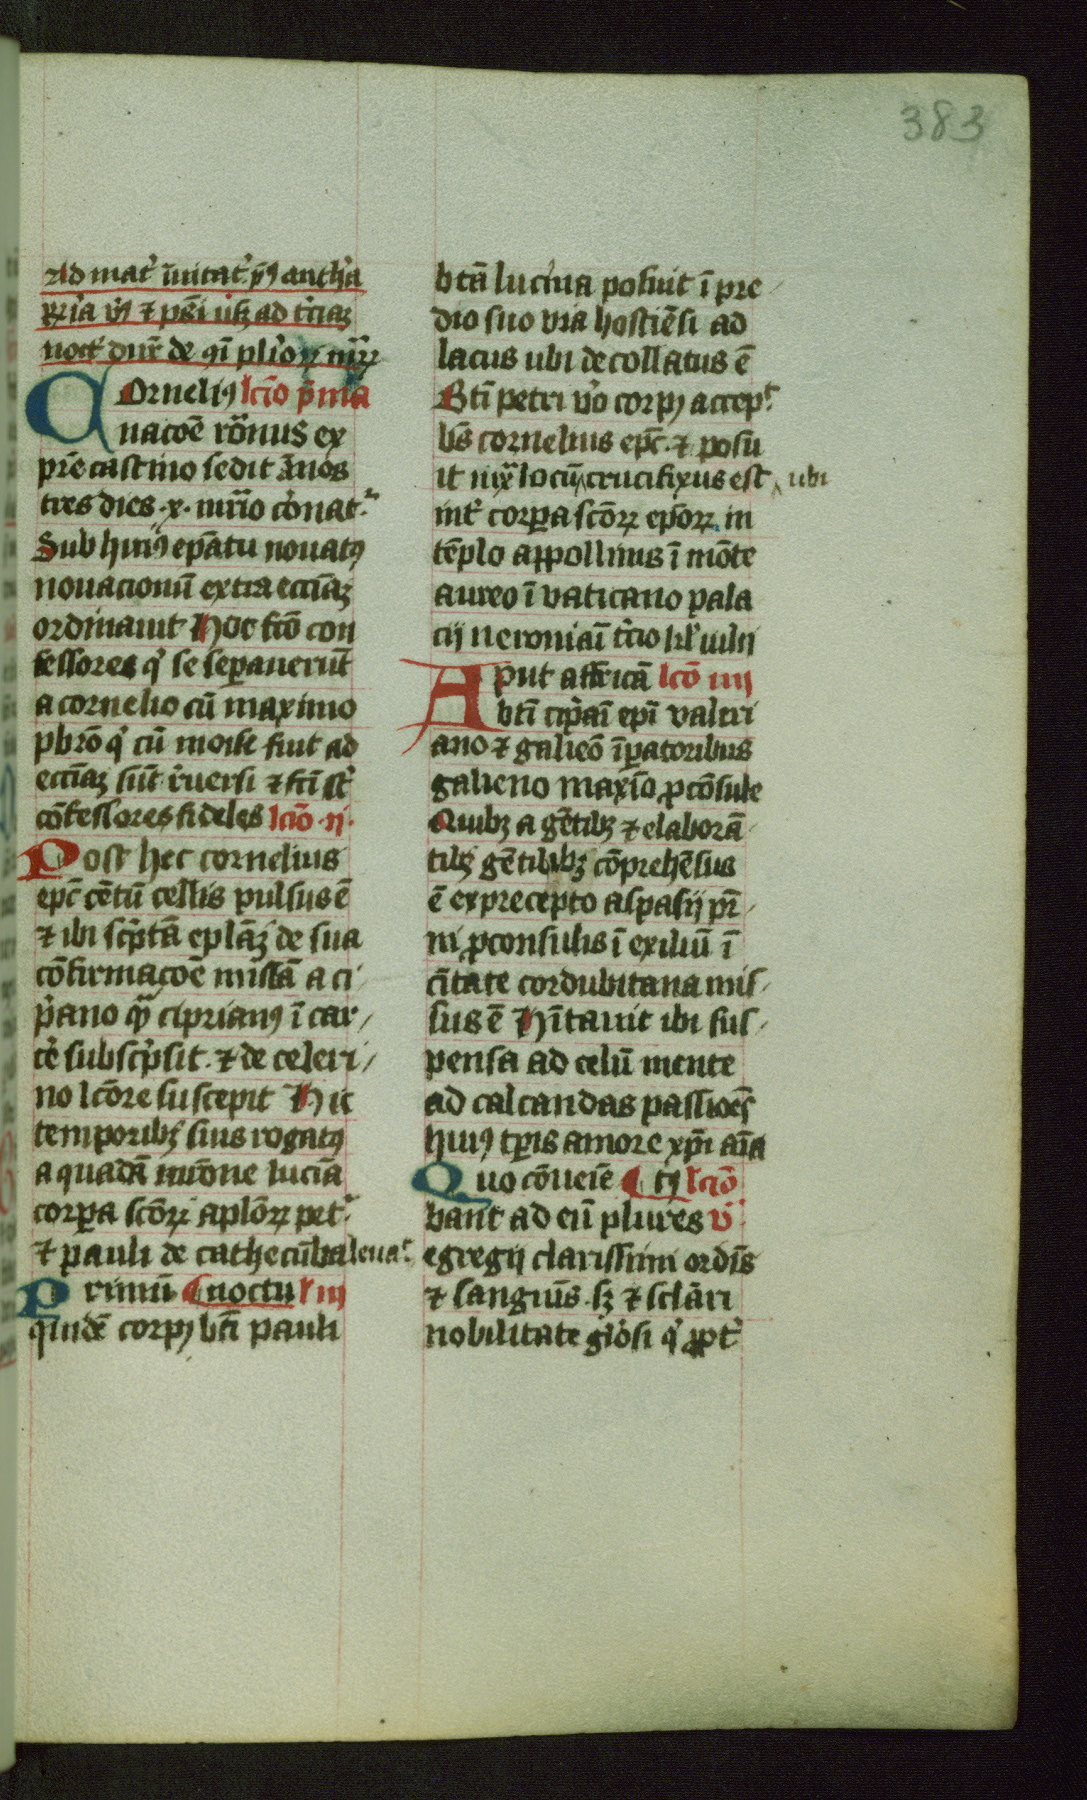 383
Ad mat' īuitat' ps antha
rria vs ⁊ psi usqz ad tciaz
noct' dur' de qī plio xx
Cornelius lcīo pma
nacōe rōnus ex
prē castino sedit ānos
tres dies ·x· mr̄io cōnat'
Sub huiꝰ epatu nouatꝰ
nouacionū extra eccīaz
ordinauit Hoc fcō con
fessores q' se separauerūt
a cornelio cū maximo
pbrō q' cū moise fiut ad
eccīaz sūt r'uersi ⁊ fcī st'
cōfessores fideles lcīo ·ij·
Post hec cornelius
epc cētū cellis pulsus ē
⁊ ibi scptā eplāz de sua
cōfirmacōe missā a ci
p'ano qm ciprianꝰ ī car
cē subscpsit · ⁊ de celeri
no lcōre suscepit Hic
temporibꝫ suis rogatꝰ
a quadā mrōne lucīa
corpa scōꝝ aplōꝝ pet'
⁊ pauli de cathecūba leua'
Primū noctu l iij
quidē corpꝰ bti pauli
btā lucina posuit ī pre
dio suo via hostiēsi ad
lacus ubi decollatus ē
Bti petri vo corpꝰ accep'
bs cornelius epc ⁊ posu
it iux locū crucifixus est ubi
int' corpa scōꝝ epōꝝ in
tēplo appollinis ī mōte
aureo ī vaticano pala
cij neroniaī t'cio kl' iulij
Aput affricā lcō iiij
bti cipaī epī valeri
ano ⁊ galieō īpatoribus
galieno maxīo pcōsule
Quibꝫ a gētibꝫ ⁊ elaborā
tibꝫ gētilibꝫ cōprehēsus
ē ex precepto aspasij pr̄
ni pconsulis ī exiliū ī
cītate cordubitana mis
sus ē Hītauit ibi sus
pensa ad celū mente
ad calcandas passioēs
huiꝰ tpis amore xpi aīa
Quo cōueiē tij lcīo
bant ad eū plures v
egregij clarissimi ordīs
⁊ sanguīs · sꝫ ⁊ sclāri
nobilitate gl'osi q' ppt'